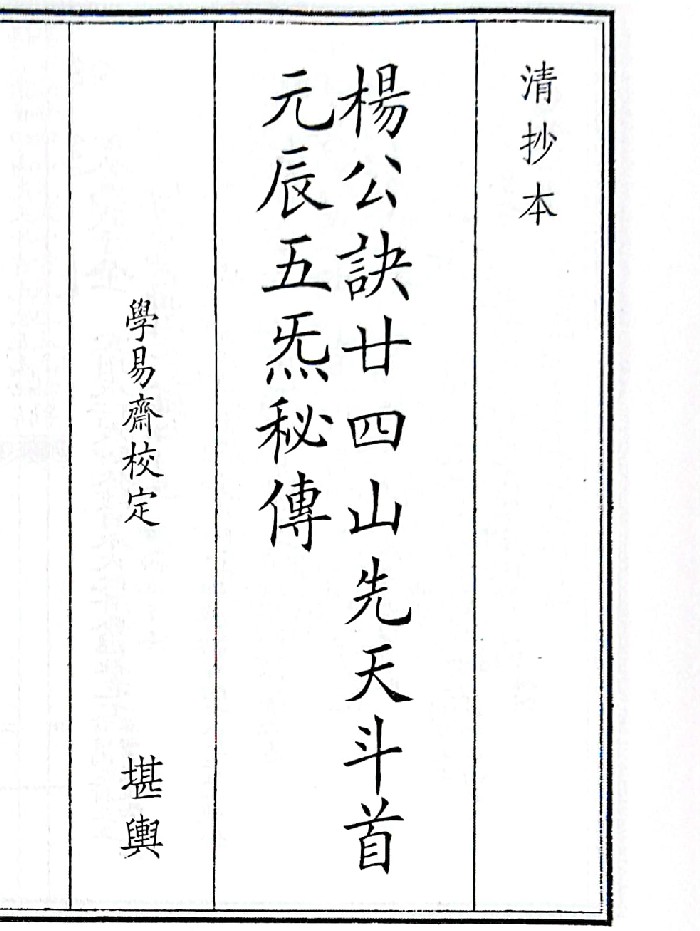 清抄本
楊公訣廿四山先天斗首
元辰五炁秘傳
學易齋校定
堪輿